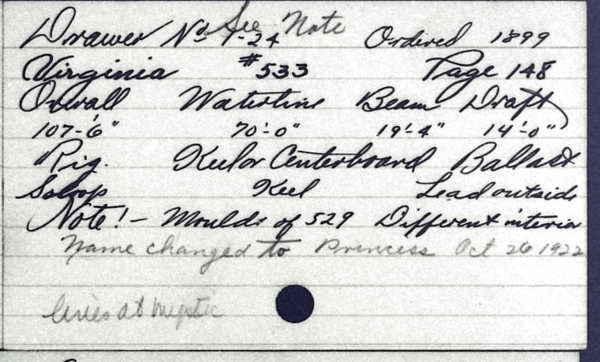 See Note
Drawer No 1-24 Ordered 1899
Virginia #533 Page 148
Overall Waterline Beam Draft
107-6" 70'-0" 19'-4" 14'-0"
Rig. Keel or Centerboard Ballast
Sloop Keel Lead outside
Note! - Moulds of 529 Different interior
Name changed to Princess Oct 26 1922
lines at Mystic